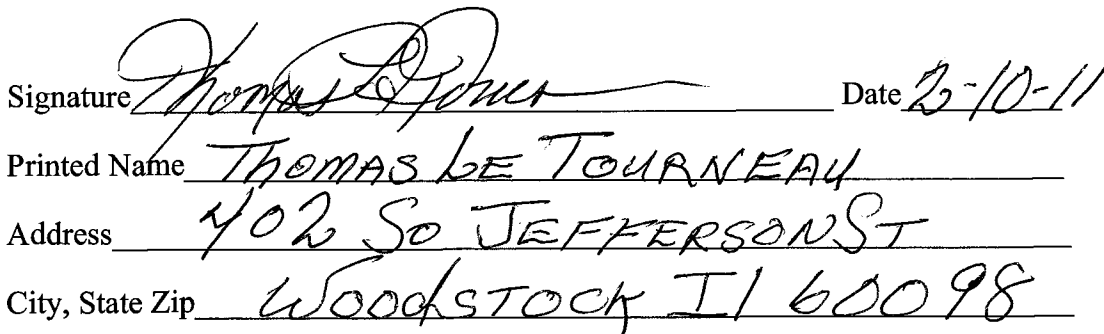 Signature Thomas Le Tourn Date 2-10-11
Printed Name THOMAS LE TOURNEAU
Address 402 SO JEFFERSON ST
City, State Zip WOODSTOCK Il 60098